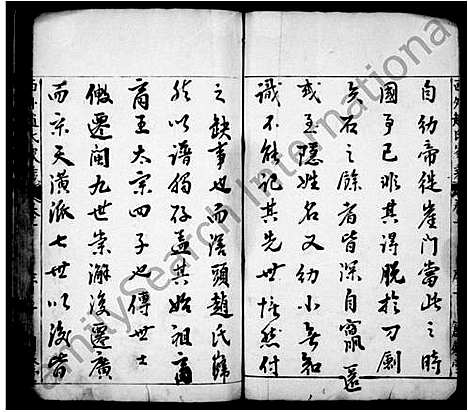 自幼帝徙崖門當此之時
國事已非其得脱於刀劇
矣石之餘者皆深自竄匿
或至隱姓名又幼小無知
識不能記其先世恬然付
之缺事也而浮頭趙氏歸
然以譜獨存蓋其始祖商
商王太宗四子也傳世士
㒇遷閩九世崇瀚復遷廣
而宗天潢派七世以後皆
FamilySearch International